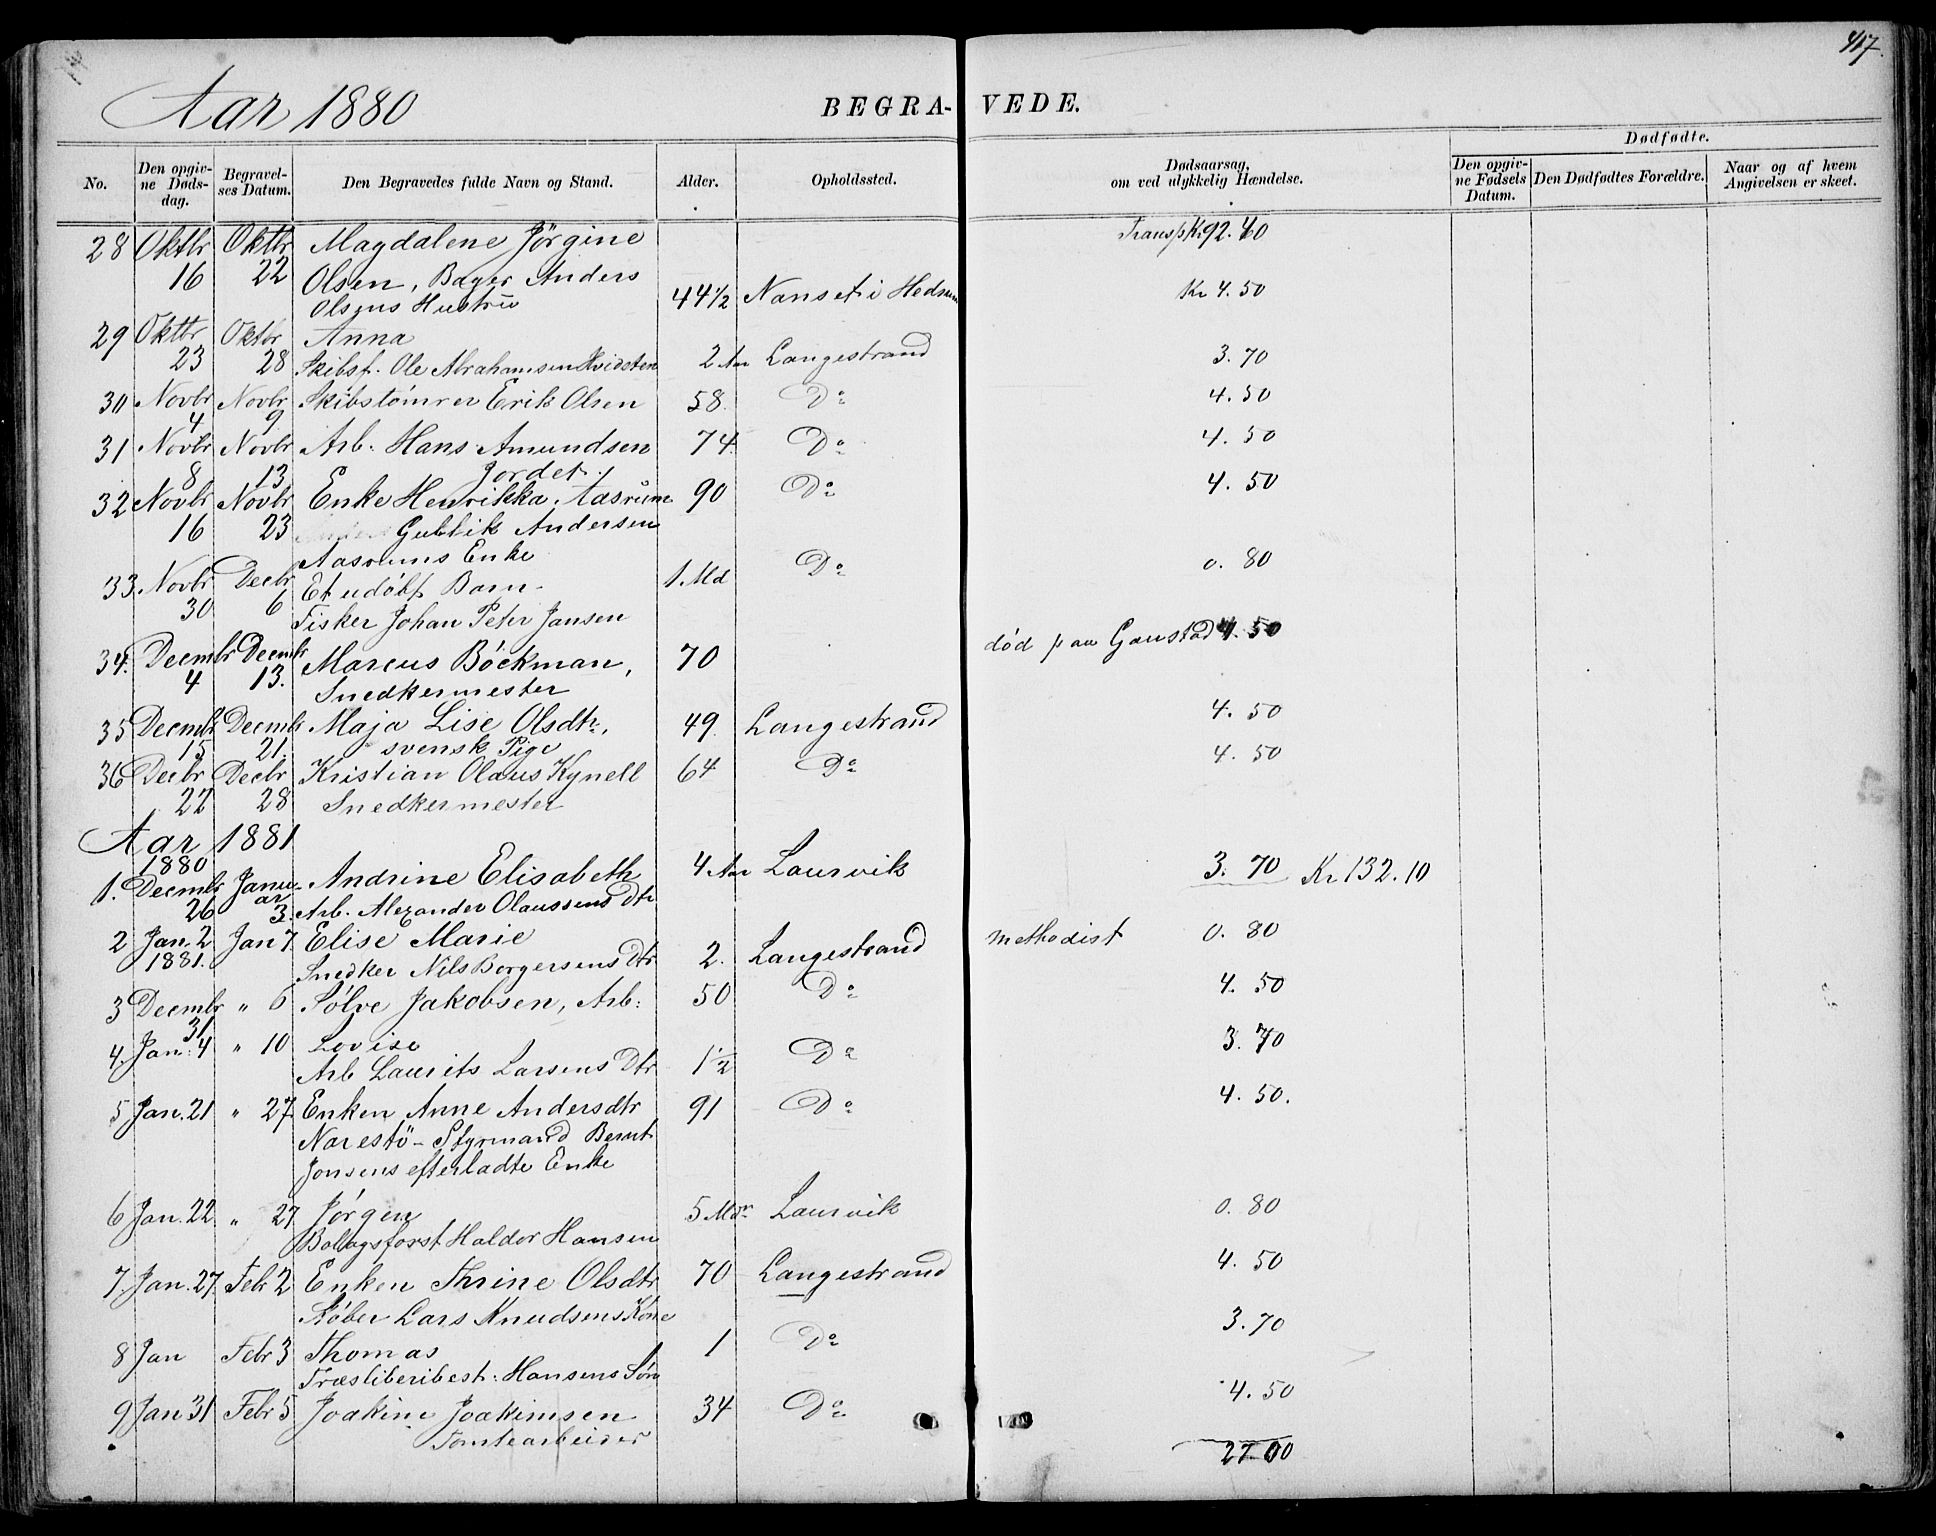 417.
Aar 1880 BEGRA- VEDE.
No. Den opgiv- ne Døds- dag. Begravel- ses Datum. Den Begravedes fulde Navn og Stand. Alder. Opholdssted. Dødsaarsag, om ved ulykkelig Hændelse. Dødfødte. Den opgiv- ne Fødsels Datum. Den Dødfødtes Forældre. Naar og af hvem Angivelsen er skeet.
28 Oktbr Oktbr Magdalene Jörgine Transp Kr 92. 40
16 22 Olsen, Bager Anders
Olsens Hustru 44 1/2 Nanset i Hedrum Kr 4. 50
29 Oktbr Oktbr Anna
23 28 Skibsf. Ole Abrahamsen Hvidsten 2 Aar Langestrand 3. 70
30 Novbr Novbr Skibstömrer Erik Olsen 58 Do 4. 50
4 9
31 Novbr Novbr Arb. Hans Amundsen 74 Do 4. 50
8 13 Jordet.
32 Novbr Novbr Enke Henrikka Aasrum 90 Do 4. 50
16 23 Gullik Andersen
Aasrums Enke
33 Novbr Decbr Et udöbt Barn 1. Md Do 0. 80
30 6 Fisker Johan Peter Jansen
34. Decmbr Decmbr Marcus Böckman, 70 död paa Gaustad 4. 50
4 13. Snedkermester
35 Decmbr Decmbr Maja Lise Olsdtr, 49. Langestrand 4. 50
15 21. svensk Pige
36 Decbr Decbr Kristian Olaus Kynell 64 Do 4. 50
22 28 Snedkermester
Aar 1881
1880
1. Decmbr Janu- Andrine Elisabeth 4 Aar Laurvik 3. 70 Kr 132. 10
26 ar 3. Arb. Alexander Olaussens Dtr
2 Jan. 2 Jan 7 Elise Marie 2. Langestrand Methodist 0. 80
1881. Snedker Nils Borgersens Dtr
3 Decmbr " 6 Sölve Jakobsen, Arb: 50 Do 4. 50
31
4. Jan: 4 " 10 Lovise 1 1/2 Do 3. 70
Arb Laurits Larsens Dtr
5 Jan. 21 " 27 Enken Anne Andersdtr 91 Do 4. 50.
Narestö - Styrmand Bernt
Jonsens efterladte Enke
6 Jan. 22. " 27 Jörgen 5 Mdr Laurvik 0. 80
Bolagsforst Haldor Hansen
7. Jan. 27. Febr 2 Enken Thrine Olsdtr 70 Langestrand 4. 50
Stöber Lars Knudsens Kone
8 Jan Febr 3 Thomas 1 Do 3. 70
Træsliberibest. Hansens Sön
9 Jan 31 Febr 5 Joakim Joakimsen 34 Do 4. 50
Tomtearbeider
27. 00